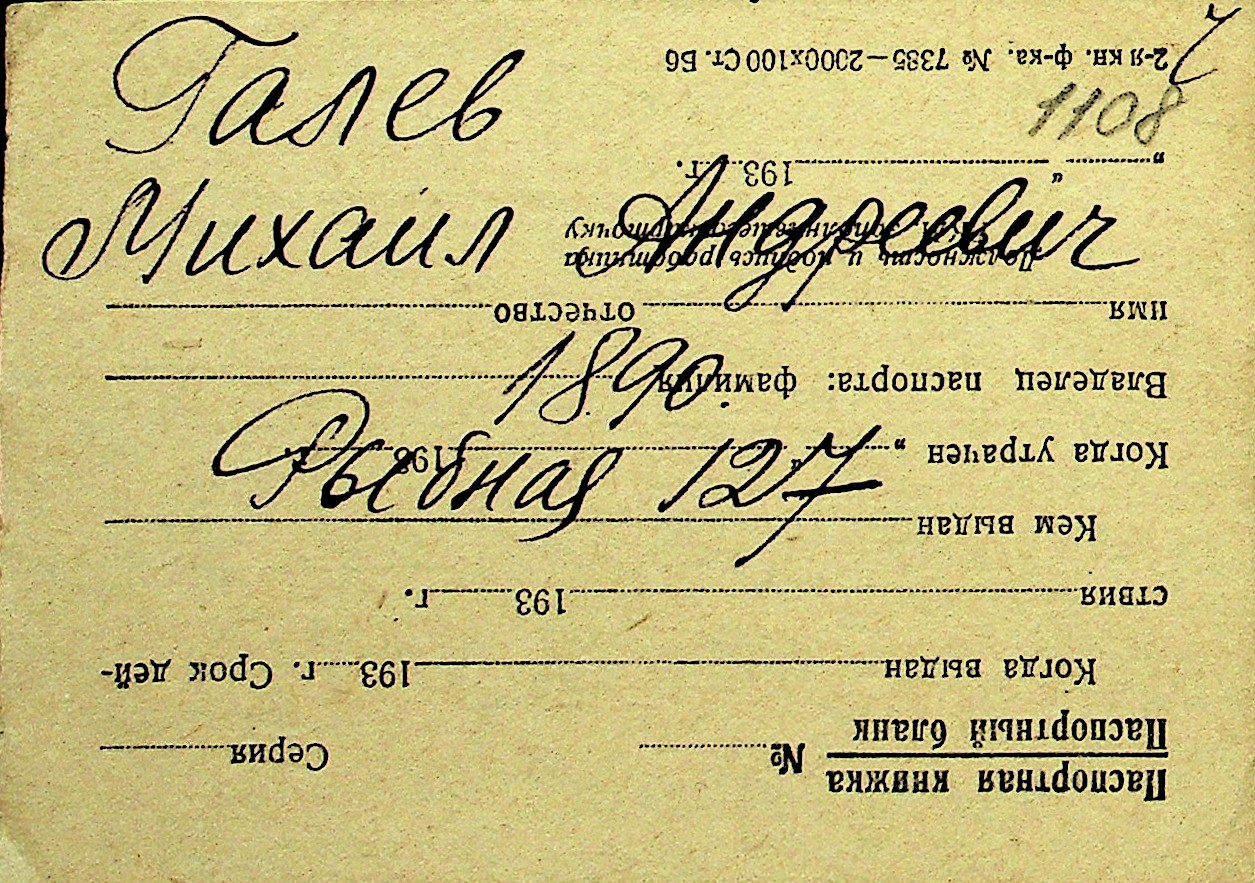 Галев
Михаил Андреевич
1890
Рыбная 127
1108
Паспортная книжка
Паспортный бланк
№ Серия
Когда выдан 193 г. Срок дей-
ствия 193 г.
Кем выдан
Когда утрачен „ “ 193
Владелец паспорта: фамилия
имя отчество
Должность и подпись работника
заполнившего карточку
„ “ 193 г.
2-я кн. ф-ка. № 7385—2000х100 Ст. Б6